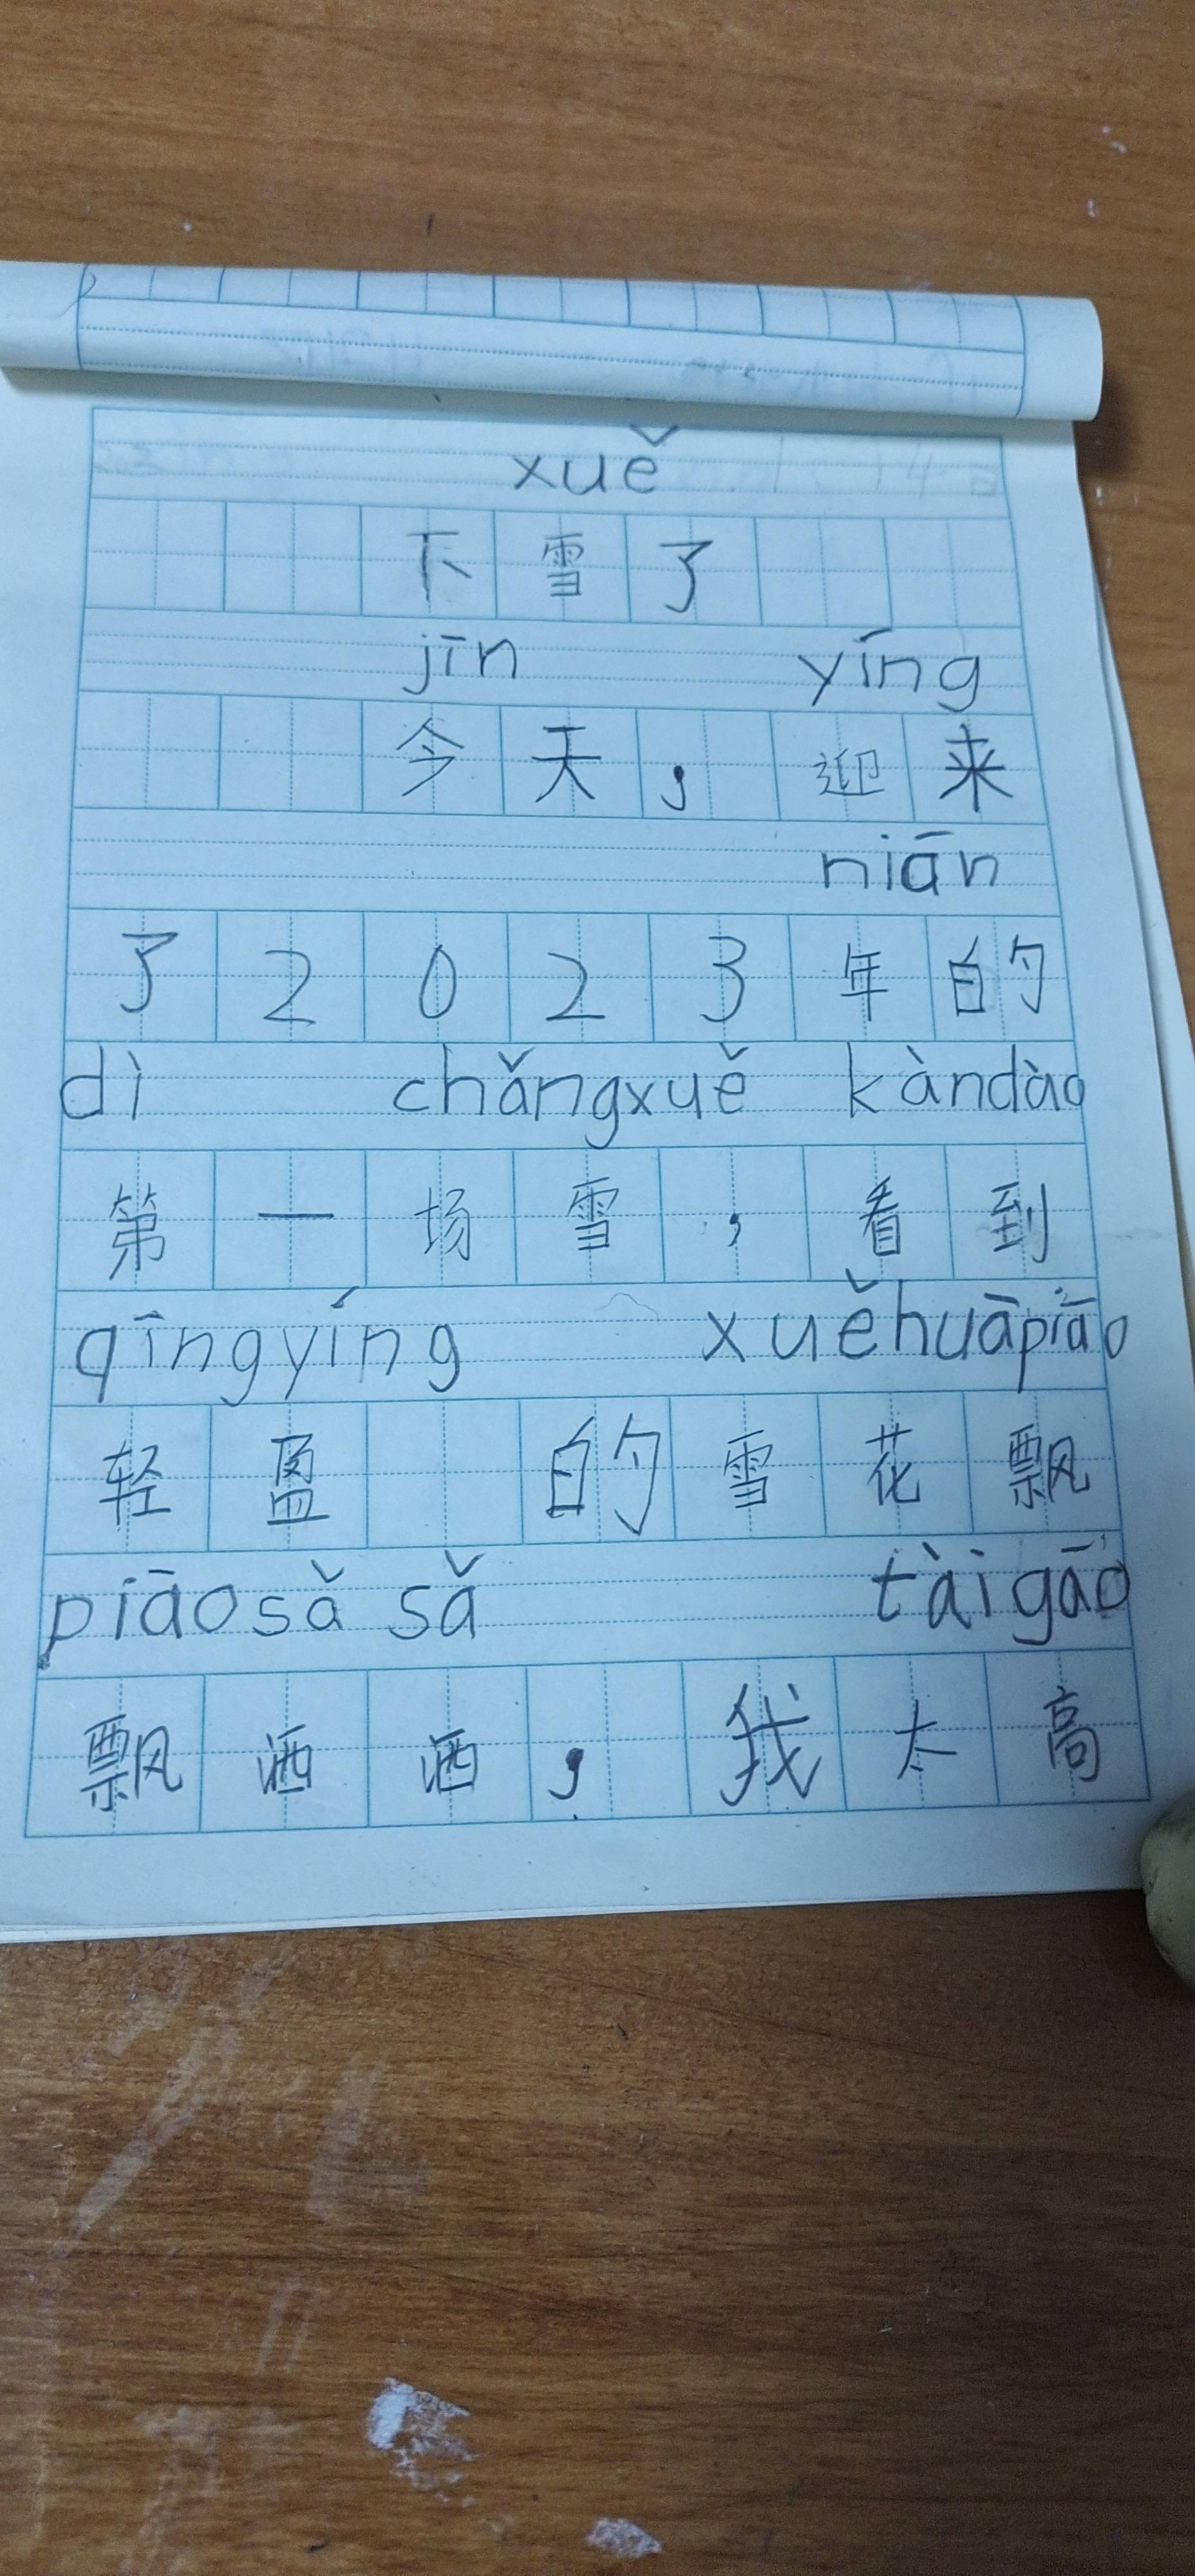 xuě
下雪了
jīn yíng
今天，迎来
niān
了2023年的
dì chǎngxuě kàndào
第一场雪，看到
qīngyíng xuěhuāpiāo
轻盈的雪花飘
piāosǎ sǎ tàigāo
飘洒洒，我太高